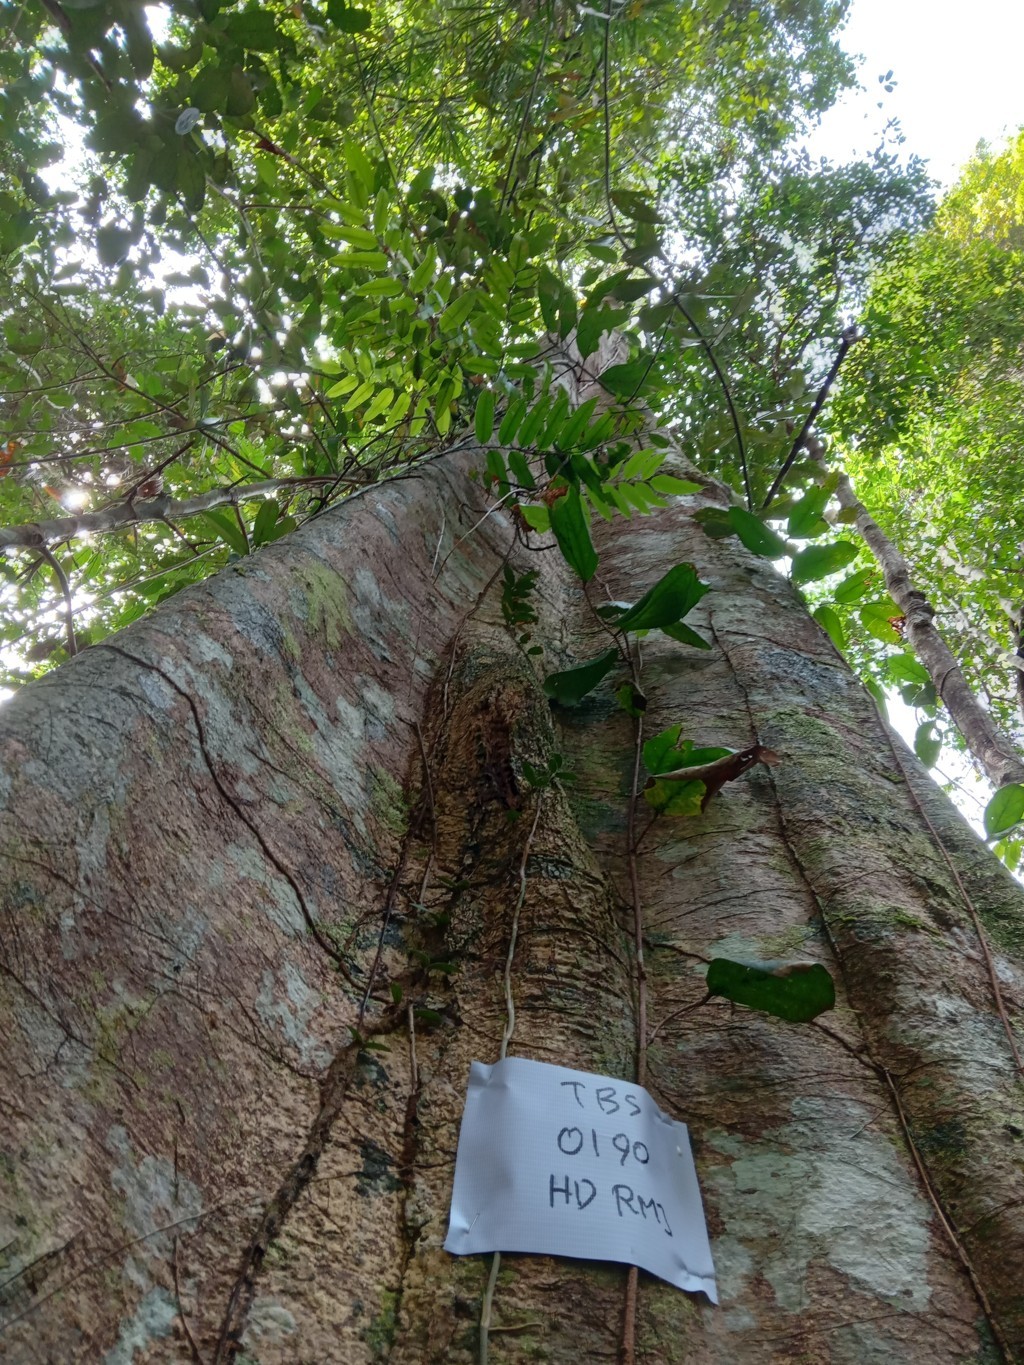 TBS
0190
HD RMJ